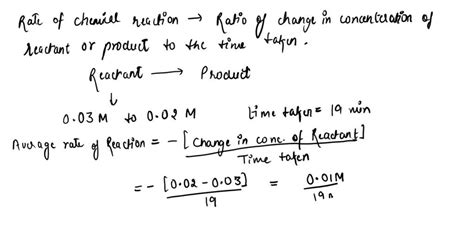 Rate of chemical reaction → Ratio of change in concentration of
reactant or product to the time taken.
Reactant → Product
↓
0.03 M to 0.02 M time taken = 19 min
Average rate of Reaction = - [Change in conc. of Reactant]
Time taken
= - [0.02 - 0.03] = 0.01M
19 19